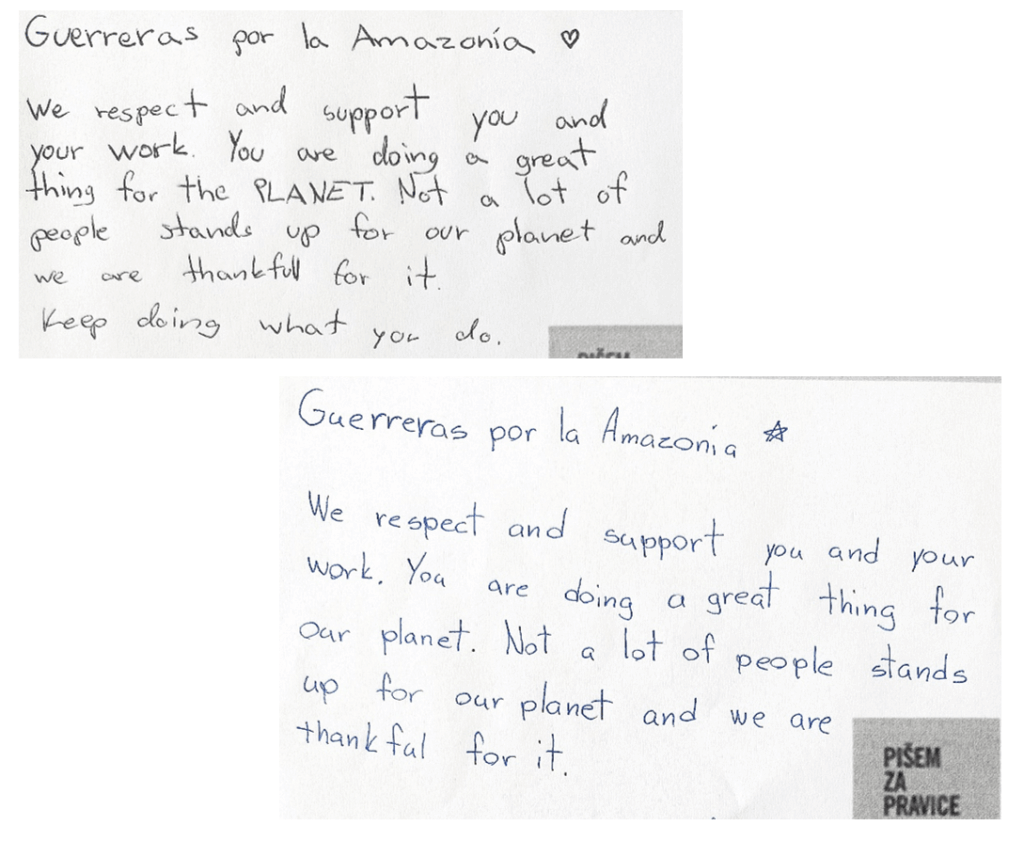 Guerreras por la Amazonía ♡
We respect and support you and
your work. You are doing a great
thing for the PLANET. Not a lot of
people stands up for our planet and
we are thankfull for it.
Keep doing what you do.
Guerreras por la Amazonia ☆
We respect and support you and your
work. You are doing a great thing for
our planet. Not a lot of people stands
up for our planet and we are
thankful for it.
PIŠEM
ZA
PRAVICE